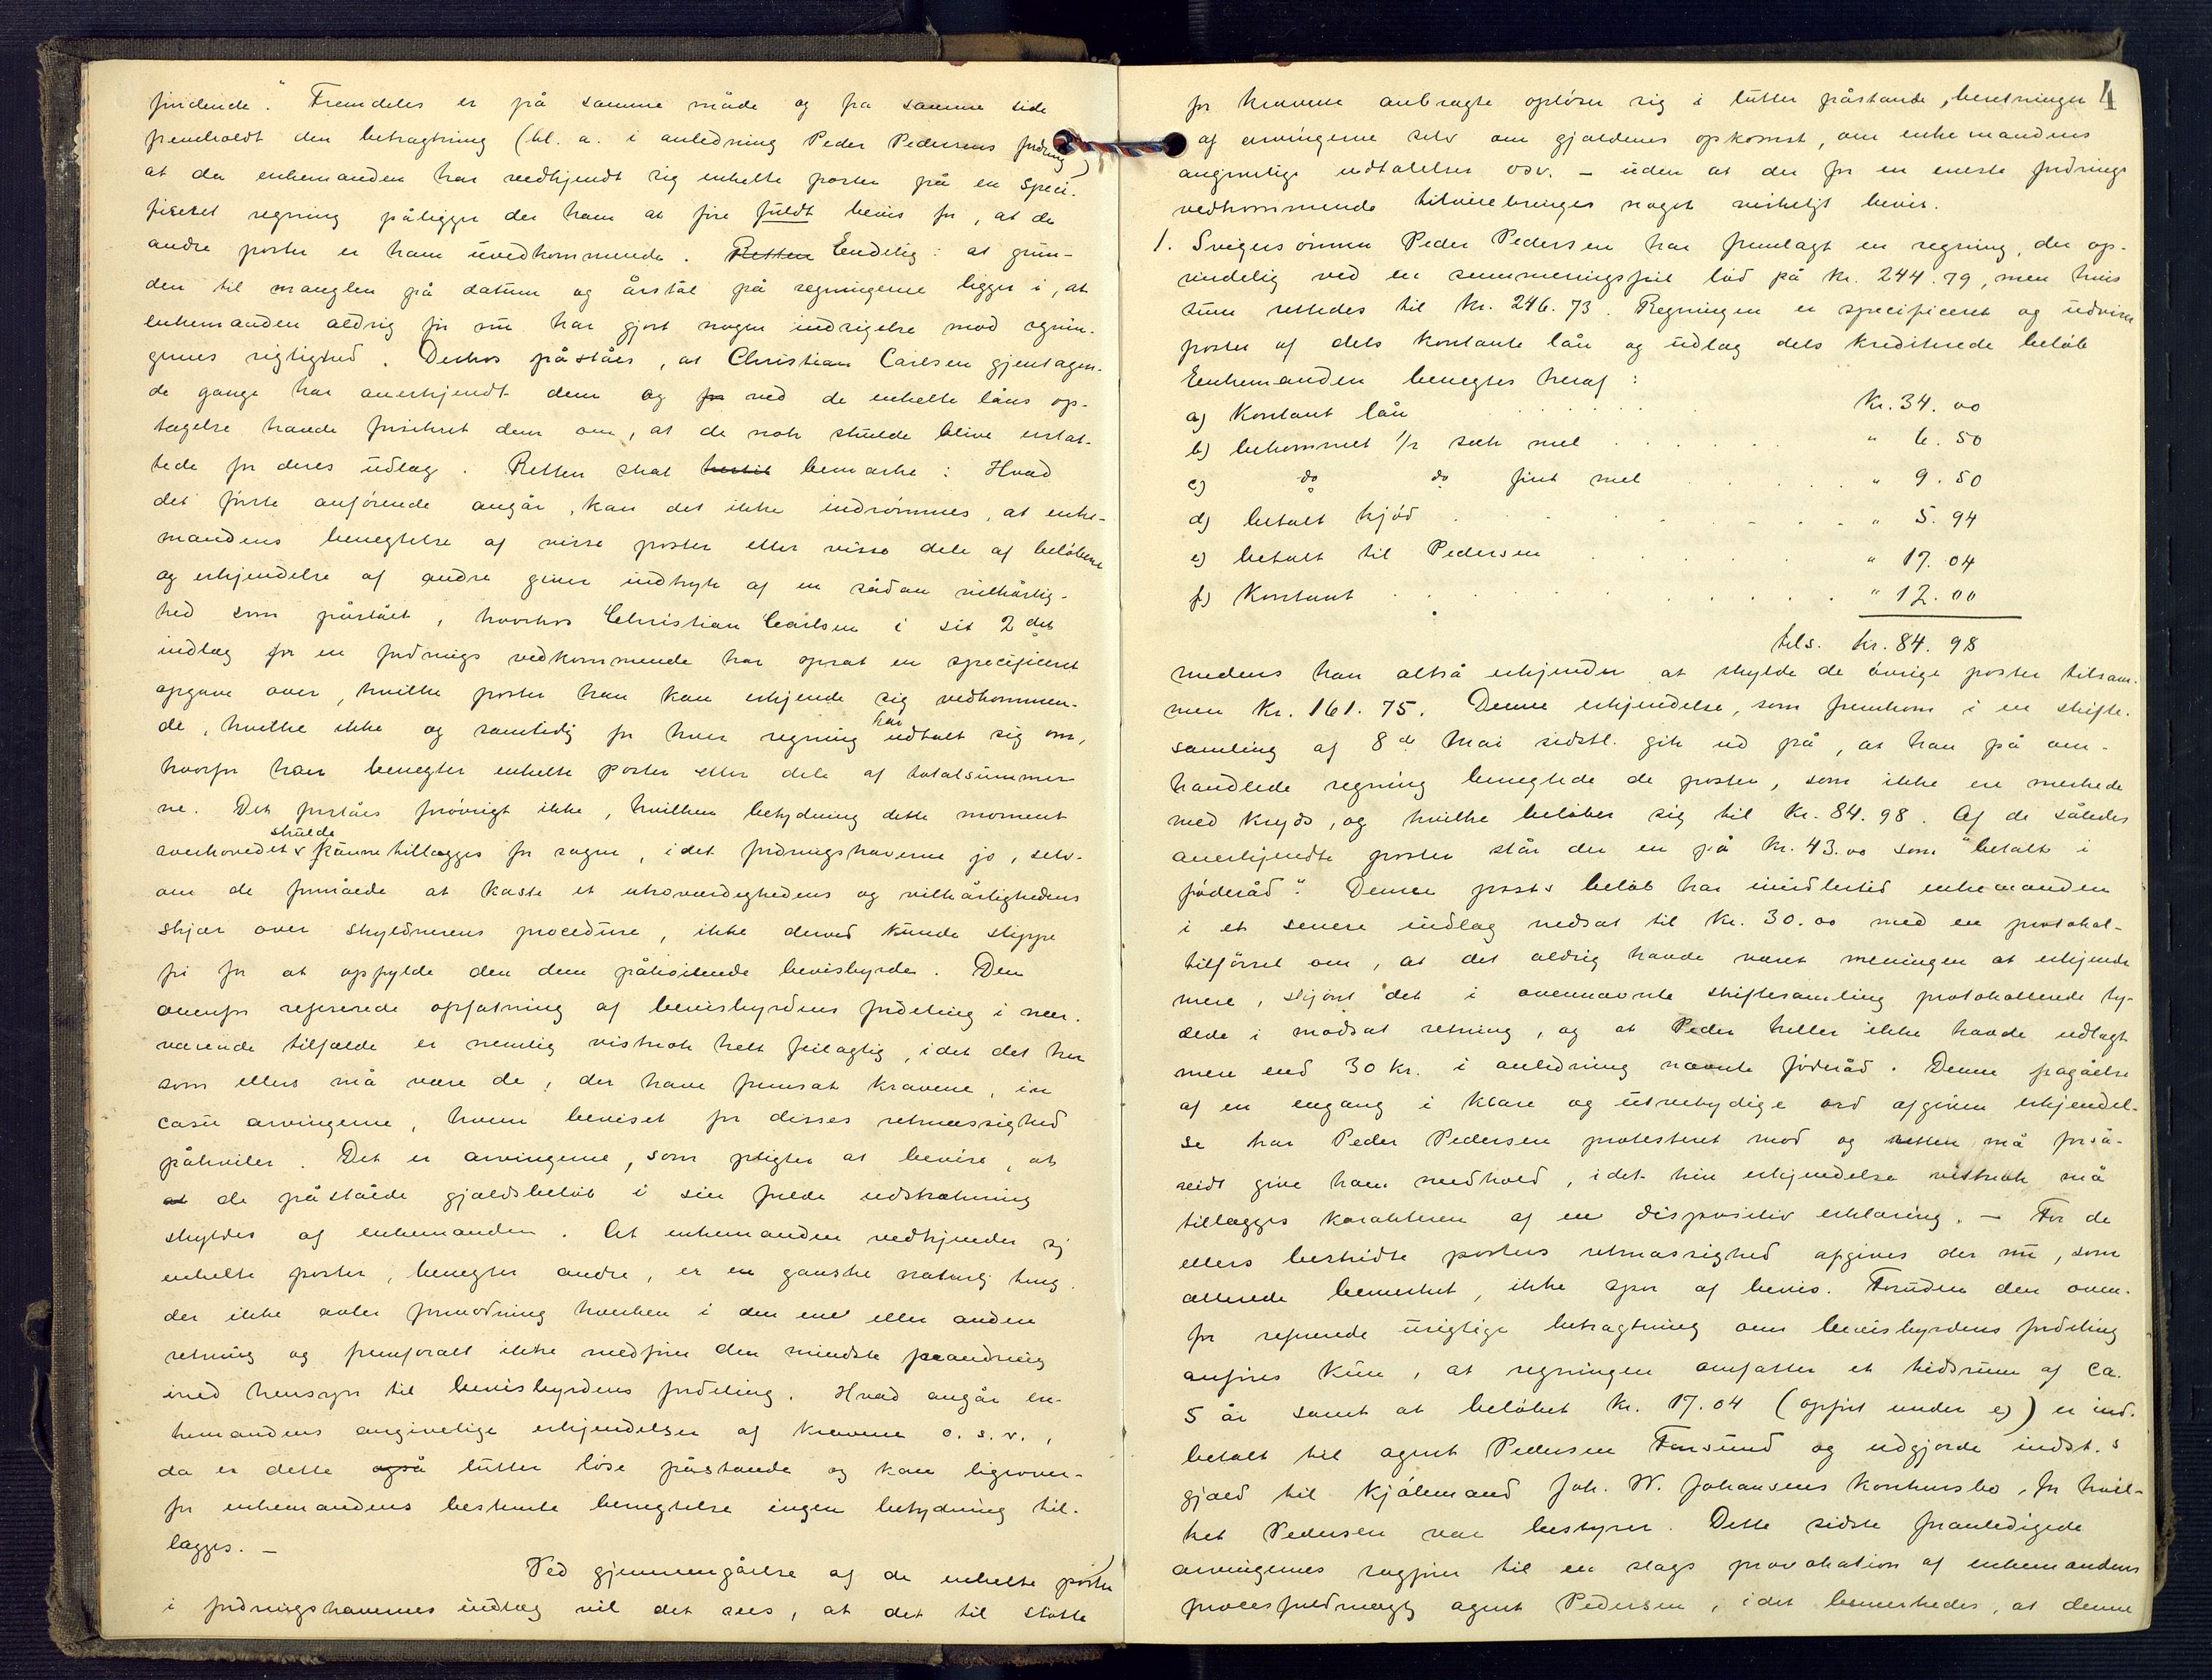 findende." Fremdeles er på samme måde og fra samme side
fremholdt den betragtning (bl. a. i anledning Peder Pedersens fordring)
at da enkemanden har vedkjendt sig enkelte poster på en speci-
ficeret regning påligger det ham at føre fuldt bevis for, at de
andre poster er ham uvedkommende. Retten Endelig: at grun-
den til manglen på datum og årstal på regningerne ligger i, at
enkemanden aldrig før nu har gjort nogen indsigelse mod regnin-
gernes rigtighed. Derhos påståes, at Christian Carlsen gjentagen-
de gange har anerkjendt dem og for ved de enkelte låns op-
tagelse havde forsikret dem om, at de nok skulde blive erstat-
tede for deres udlæg. Retten skal hertil bemærke: Hvad
det første anførende angår, kan det ikke indrømmes, at enke-
mandens benegtelse af visse poster eller visse dele af beløbene
og erkjendelse af andre giver indtryk af en sådan vilkårlig-
hed som påstået, hvorhos Christian Carlsen i sit 2det
indlæg for en fordrings vedkommende har opsat en specificeret
opgave over, hvilke poster han kan erkjende sig vedkommen-
de, hvilke ikke og samtidig for hver regning har udtalt sig om,
hvorfor han benegter enkelte poster eller dele af totalsummer-
ne. Det forståes forøvrigt ikke, hvilken betydning dette moment
overhovedet skulde kunne tillægges for sagen, idet fordringshaverne jo, selv-
om de formåede at kaste et utroværdighedens og vilkårlighedens
skjær over skyldnerens procedure, ikke derved kunde slippe
fri for at opfylde den dem påhvilende bevisbyrde. Den
ovenfor refererede opfatning af bevisbyrdens fordeling i nær-
værende tilfælde er nemlig vistnok helt feilagtig, idet det her
som ellers må være de, der have fremsat kravene, in
casu arvingerne, hvem beviset for disses retmæssighed
påhviler. Det er arvingerne, som pligter at bevise, at
at de påståede gjældsbeløb i sin fulde udstrækning
skyldes af enkemanden. At enkemanden vedkjender sig
enkelte poster, benegter andre, er en ganske naturlig ting,
der ikke avler formodning hverken i den ene eller anden
retning og fremforalt ikke medfører den mindste forandring
med hensyn til bevisbyrdens fordeling. Hvad angår en-
kemandens angivelige erkjendelser af kravene o. s. v.,
da er dette også lutter løse påstande og kan ligeover-
for enkemandens bestemte benegtelse ingen betydning til-
lægges. —
Ved gjennemgåelse af de enkelte poster
i fordringshavernes indlæg vil det sees, at det til støtte
4
for kravene anbragte opløser sig i lutter påstande, beretninger
af arvingerne selv om gjældens opkomst, om enkemandens
angivelige udtalelser osv. — uden at der for en eneste fordrings
vedkommende tilveiebringes noget virkeligt bevis.
1. Svigersønnen Peder Pedersen har fremlagt en regning, der op-
rindelig ved en summeringsfeil lød på kr. 244.79, men hvis
sum rettedes til kr. 246.73. Regningen er specificeret og udviser
poster af dels kontante lån og udlæg dels krediterede beløb
Enkemanden benegter heraf:
a) Kontant lån . . . . . Kr. 34.00
b) bekommet 1/2 sæk mel . . . . . " 6.50
c) do do fint mel . . . . . " 9.50
d) betalt kjød . . . . . " 5.94
e) betalt til Pedersen . . . . . " 17.04
f) Kontant . . . . . " 12.00
tils. kr. 84.98
medens han altså erkjender at skylde de øvrige poster tilsam-
men Kr. 161.75. Denne erkjendelse, som fremkom i en skifte-
samling af 8de Mai sidstl. gik ud på, at han på om-
handlede regning benegtede de poster, som ikke ere merkede
med kryds, og hvilke beløber sig til Kr. 84.98. Af de således
anerkjendte poster står der en på kr. 43.00 som "betalt i
føderåd". Denne posts beløb har imidlertid enkemanden
i et senere indlæg nedsat til Kr. 30.00 med en protokol-
tilførsel om, at det aldrig havde været meningen at erkjende
mere, skjønt det i ovennævnte skiftesamling protokollerede ty-
dede i modsat retning, og at Peder heller ikke havde udlagt
mere end 30 kr. i anledning nævnte føderåd. Denne fragåelse
af en engang i klare og utvetydige ord afgiven erkjendel-
se har Peder Pedersen protesteret mod og retten må forså-
vidt give ham medhold, idet hin erkjendelse vistnok må
tillægges karakteren af en dispositiv erklæring. — For de
ellers bestridte posters retmæssighed afgives der nu, som
allerede bemerket, ikke spor af bevis. Foruden den oven-
for refererede urigtige betragtning om bevisbyrdens fordeling
anføres kun, at regningen omfatter et tidsrum af ca.
5 år samt at beløbet kr. 17.04 (opført under e)) er ind-
betalt til agent Pedersen Farsund og udgjorde indst.s
gjæld til kjøbmand Joh. W. Johansens konkursbo, for hvil-
ket Pedersen var bestyrer. Dette sidste foranledigede
arvingernes sagfører til en slags provokation af enkemandens
procesfuldmægtig agent Pedersen, idet bemerkedes, at denne